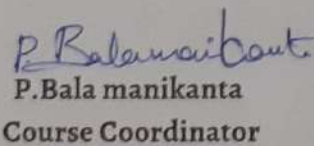 P. Balamanikanta.
P.Bala manikanta
Course Coordinator